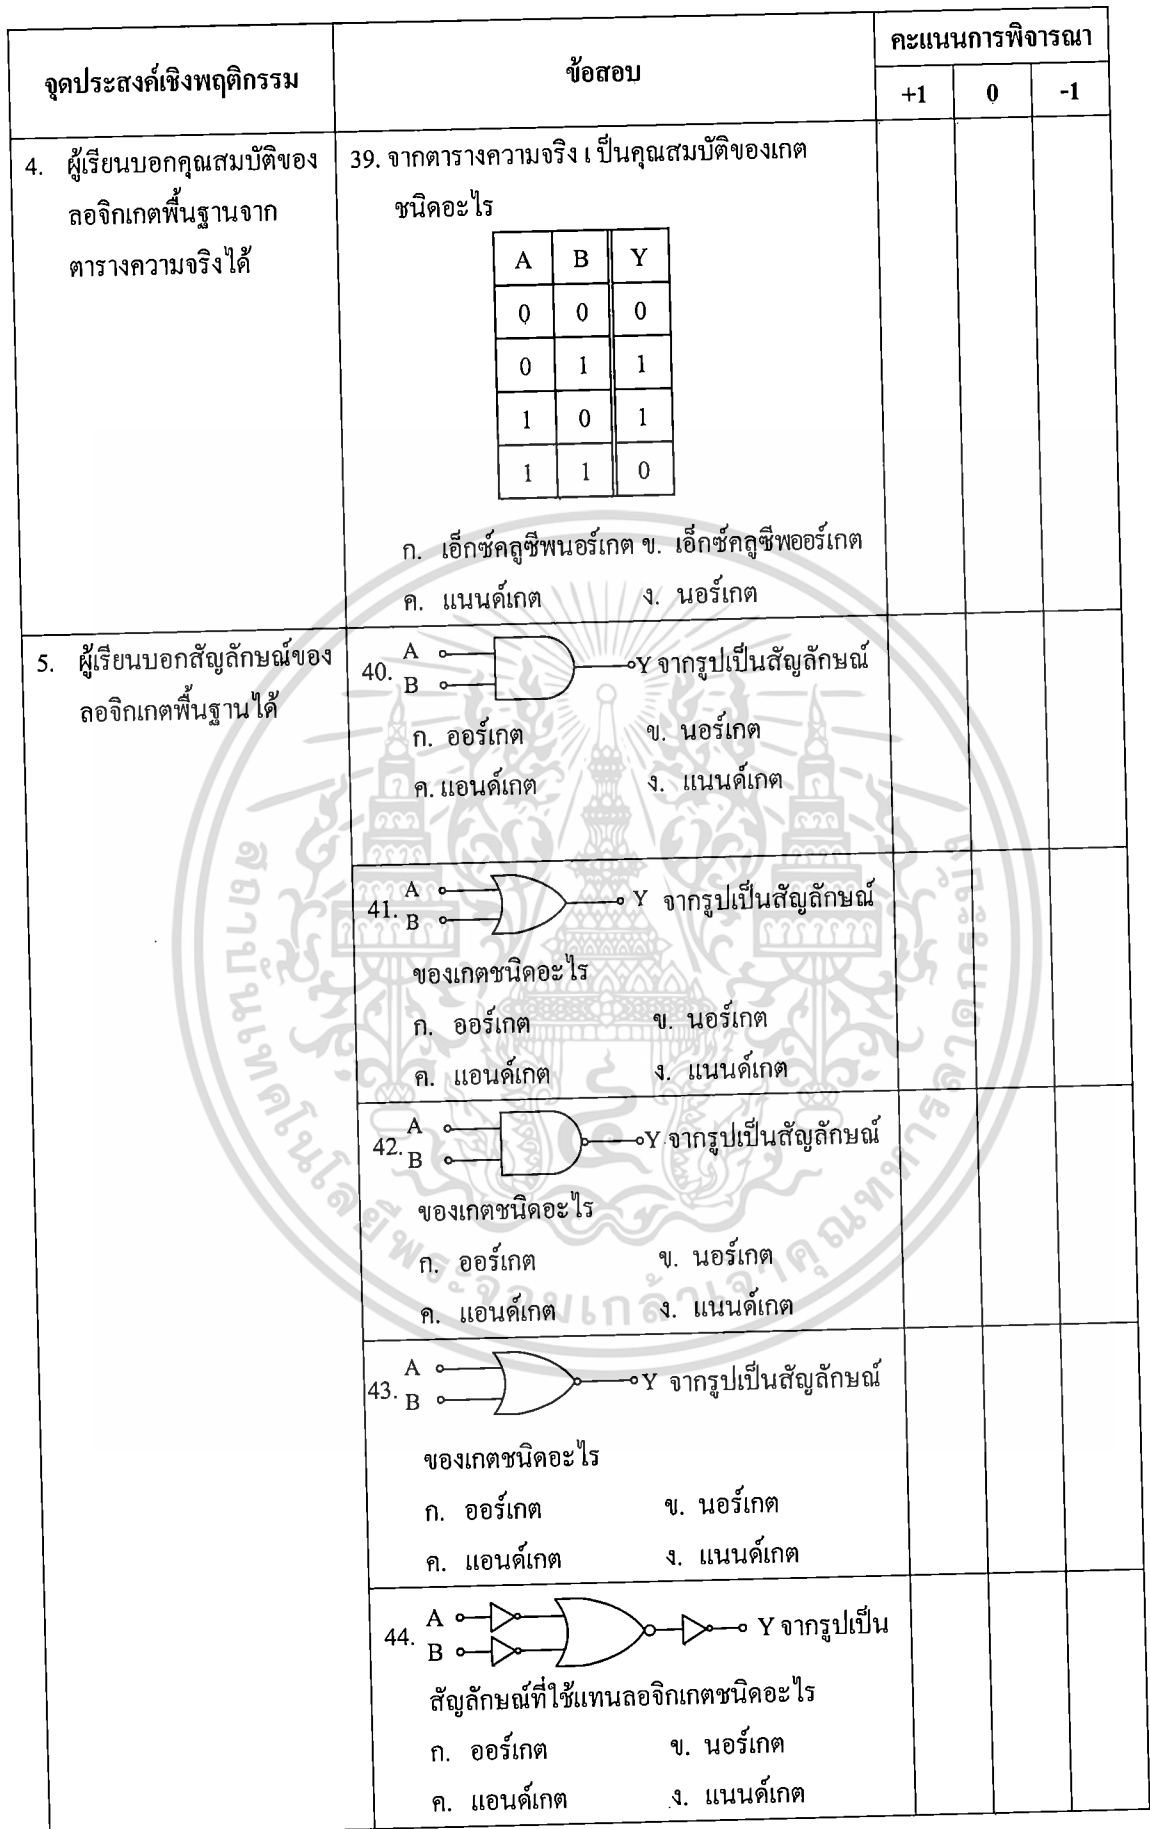 จุดประสงค์เชิงพฤติกรรม
ข้อสอบ
คะแนนการพิจารณา
+1 0 -1
4. ผู้เรียนบอกคุณสมบัติของ
ลอจิกเกตพื้นฐานจาก
ตารางความจริงได้
39. จากตารางความจริง เ ป็นคุณสมบัติของเกต
ชนิดอะไร
A B Y
0 0 0
0 1 1
1 0 1
1 1 0
ก. เอ็กซ์คลูซีพนอร์เกต ข. เอ็กซ์คลูซีพออร์เกต
ค. แนนด์เกต ง. นอร์เกต
5. ผู้เรียนบอกสัญลักษณ์ของ
ลอจิกเกตพื้นฐานได้
40. A B Y จากรูปเป็นสัญลักษณ์
ก. ออร์เกต ข. นอร์เกต
ค. แอนด์เกต ง. แนนด์เกต
41. A B Y จากรูปเป็นสัญลักษณ์
ของเกตชนิดอะไร
ก. ออร์เกต ข. นอร์เกต
ค. แอนด์เกต ง. แนนด์เกต
42. A B Y จากรูปเป็นสัญลักษณ์
ของเกตชนิดอะไร
ก. ออร์เกต ข. นอร์เกต
ค. แอนด์เกต ง. แนนด์เกต
43. A B Y จากรูปเป็นสัญลักษณ์
ของเกตชนิดอะไร
ก. ออร์เกต ข. นอร์เกต
ค. แอนด์เกต ง. แนนด์เกต
44. A B Y จากรูปเป็น
สัญลักษณ์ที่ใช้แทนลอจิกเกตชนิดอะไร
ก. ออร์เกต ข. นอร์เกต
ค. แอนด์เกต ง. แนนด์เกต
สถาบันเทคโนโลยีพระจอมเกล้าเจ้าคุณทหารลาดกระบัง